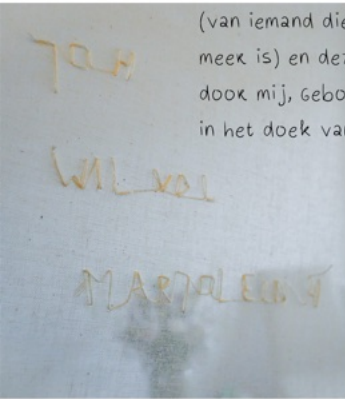 (van iemand die
meer is) en dez
door mij, Gebo
in het doek var
JAN
WIL VOL
MARJOLEIN